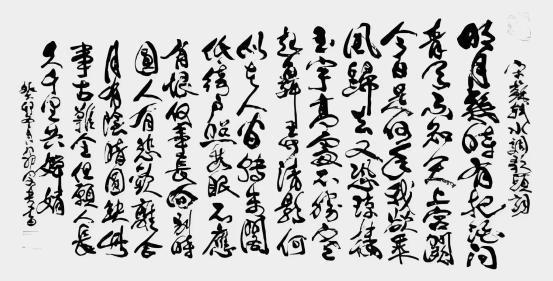 宋蘇軾水調歌頭詞
明月幾時有把酒问
青天不知天上宫闕
今夕是何年我欲乘
風歸去又恐瓊樓
玉宇高處不勝寒
起舞弄清影何
似在人间轉朱閣
低綺户照無眠不應
有恨何事長向别時
圓人有悲歡離合
月有陰晴圓缺此
事古難全但願人長
久千里共嬋娟
癸卯年